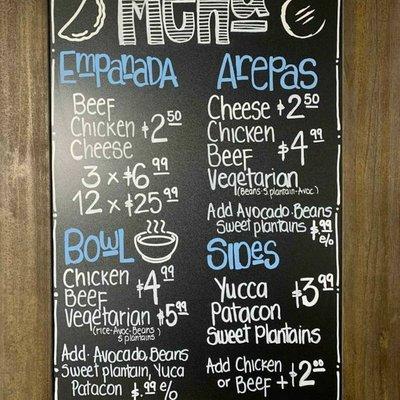 Menu
Empanada
Beef
Chicken $2.50
Cheese
3 x $6.99
12 x $25.99
Arepas
Cheese $2.50
Chicken
Beef $4.99
Vegetarian
(Beans-S.plantain-Avoc)
Add Avocado.Beans
Sweet plantains $.99 e/o
Bowl
Chicken $4.99
Beef
Vegetarian $5.99
(rice-Avoc-Beans)
S plantains
Add. Avocado, Beans
Sweet plantain, Yuca
Patacon $.99 e/o
Sides
Yucca $3.99
Patacon
Sweet Plantains
Add Chicken
or Beef + $2.00